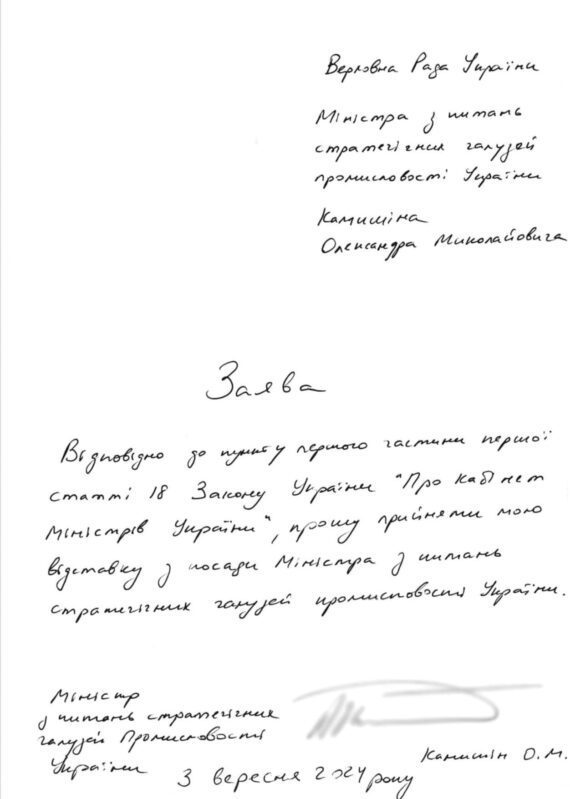 Верховна Рада України
Міністра з питань
стратегічних галузей
промисловості України
Камишіна
Олександра Миколайовича
Заява
Відповідно до пункту першого частини першої
статті 18 Закону України "Про Кабінет
Міністрів України", прошу прийняти мою
відставку з посади Міністра з питань
стратегічних галузей промисловості України.
Міністр
з питань стратегічних
галузей Промисловості
України
Камишін О.М.
3 вересня 2024 року